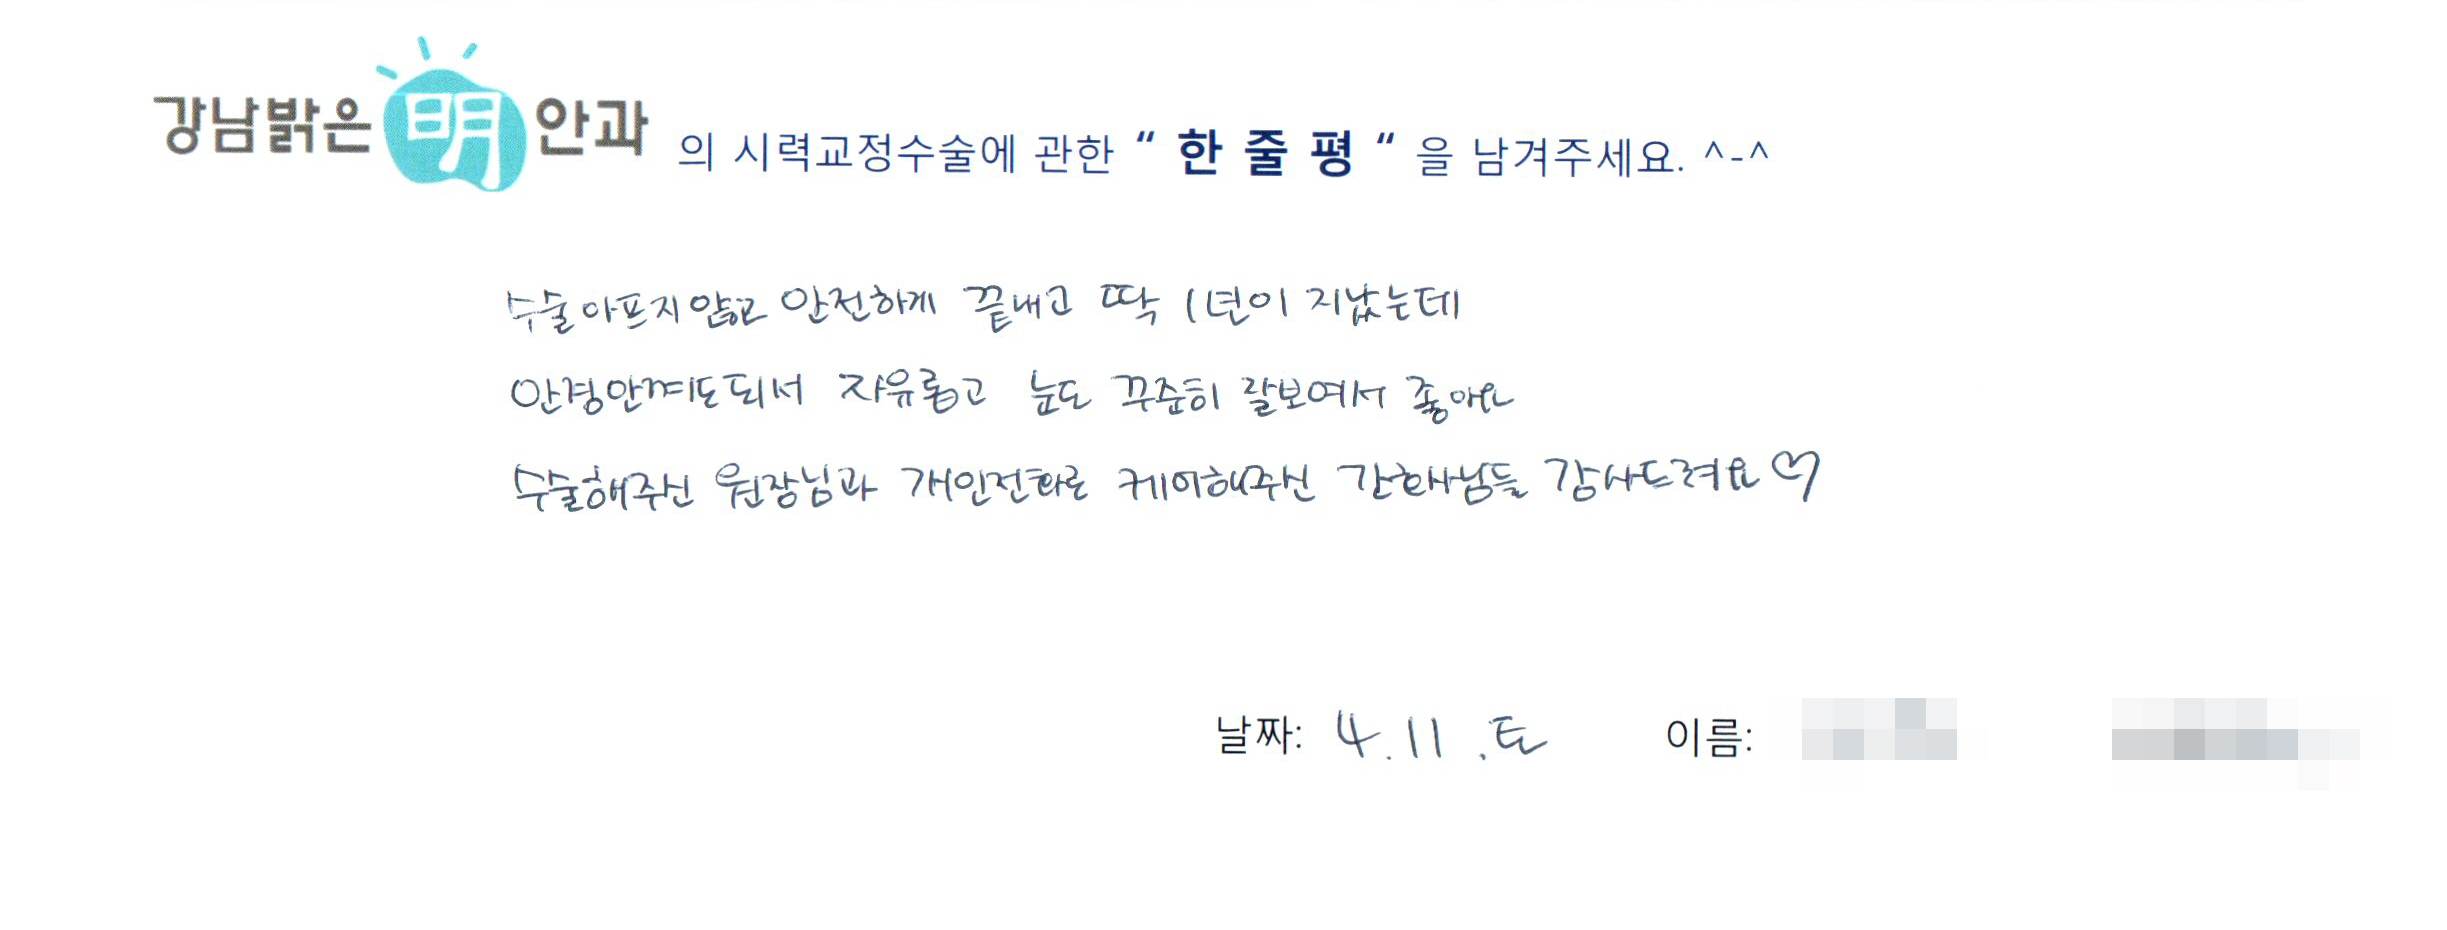 강남밝은 明 안과 의 시력교정수술에 관한 “ 한 줄 평 “ 을 남겨주세요. ^-^
수술아프지않고 안전하게 끝내고 딱 1년이 지났는데
안경안껴도되서 자유롭고 눈도 꾸준히 잘보여서 좋아요
수술해주신 원장님과 개인전화로 케어해주신 간호사님들 감사드려요♡
날짜: 4.11.토 이름: